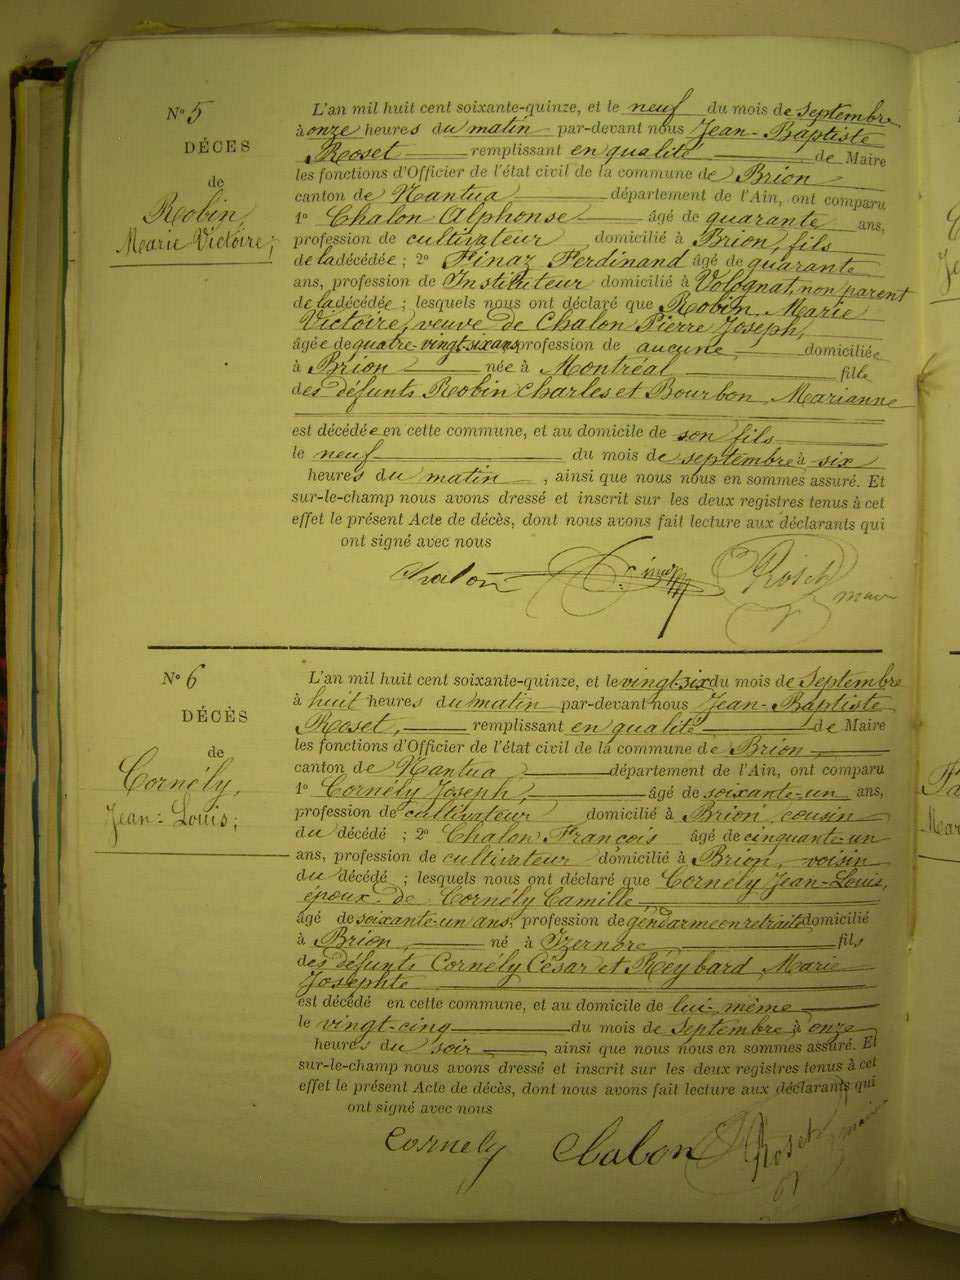 N° 5
DÉCÈS
de
Robin,
Marie Victoire;
L'an mil huit cent soixante-quinze, et le neuf du mois de septembre
à onze heures du matin par-devant nous Jean-Baptiste
Roset remplissant en qualité de Maire
les fonctions d'Officier de l'état civil de la commune de Brion
canton de Nantua département de l'Ain, ont comparu
1° Chalon Alphonse âgé de quarante ans,
profession de cultivateur domicilié à Brion, fils
de la décédée ; 2° Finaz Ferdinand âgé de quarante
ans, profession de Instituteur domicilié à Volognat, non parent
de la décédée ; lesquels nous ont déclaré que Robin, Marie
Victoire, veuve de Chalon Pierre Joseph,
âgée de quatre-vingt-six ans profession de aucune, domiciliée
à Brion née à Montréal fille
des défunts Robin Charles et Bourbon, Marianne
est décédée en cette commune, et au domicile de son fils
le neuf du mois de septembre à six
heures du matin , ainsi que nous nous en sommes assuré. Et
sur-le-champ nous avons dressé et inscrit sur les deux registres tenus à cet
effet le présent Acte de décès, dont nous avons fait lecture aux déclarants qui
ont signé avec nous
Chalon Roset
N° 6
DÉCÈS
de
Cornély,
Jean-Louis;
L'an mil huit cent soixante-quinze, et le vingt-six du mois de Septembre
à huit heures du matin par-devant nous Jean-Baptiste
Roset, remplissant en qualité de Maire
les fonctions d'Officier de l'état civil de la commune de Brion,
canton de Nantua, département de l'Ain, ont comparu
1° Cornély Joseph, âgé de soixante-un ans,
profession de cultivateur domicilié à Brion, cousin
du décédé ; 2° Chalon François âgé de cinquante-un
ans, profession de cultivateur domicilié à Brion, voisin
du décédé ; lesquels nous ont déclaré que Cornély Jean-Louis,
époux de Cornély Camille
âgé de soixante-un ans, profession de gendarme en retraite domicilié
à Brion, né à Izernore, fils
des défunts Cornély César et Reybard Marie
Josephte
est décédé en cette commune, et au domicile de lui-même
le vingt-cinq du mois de Septembre à onze
heures du soir, ainsi que nous nous en sommes assuré. Et
sur-le-champ nous avons dressé et inscrit sur les deux registres tenus à cet
effet le présent Acte de décès, dont nous avons fait lecture aux déclarants qui
ont signé avec nous
Cornely Chalon Roset maire